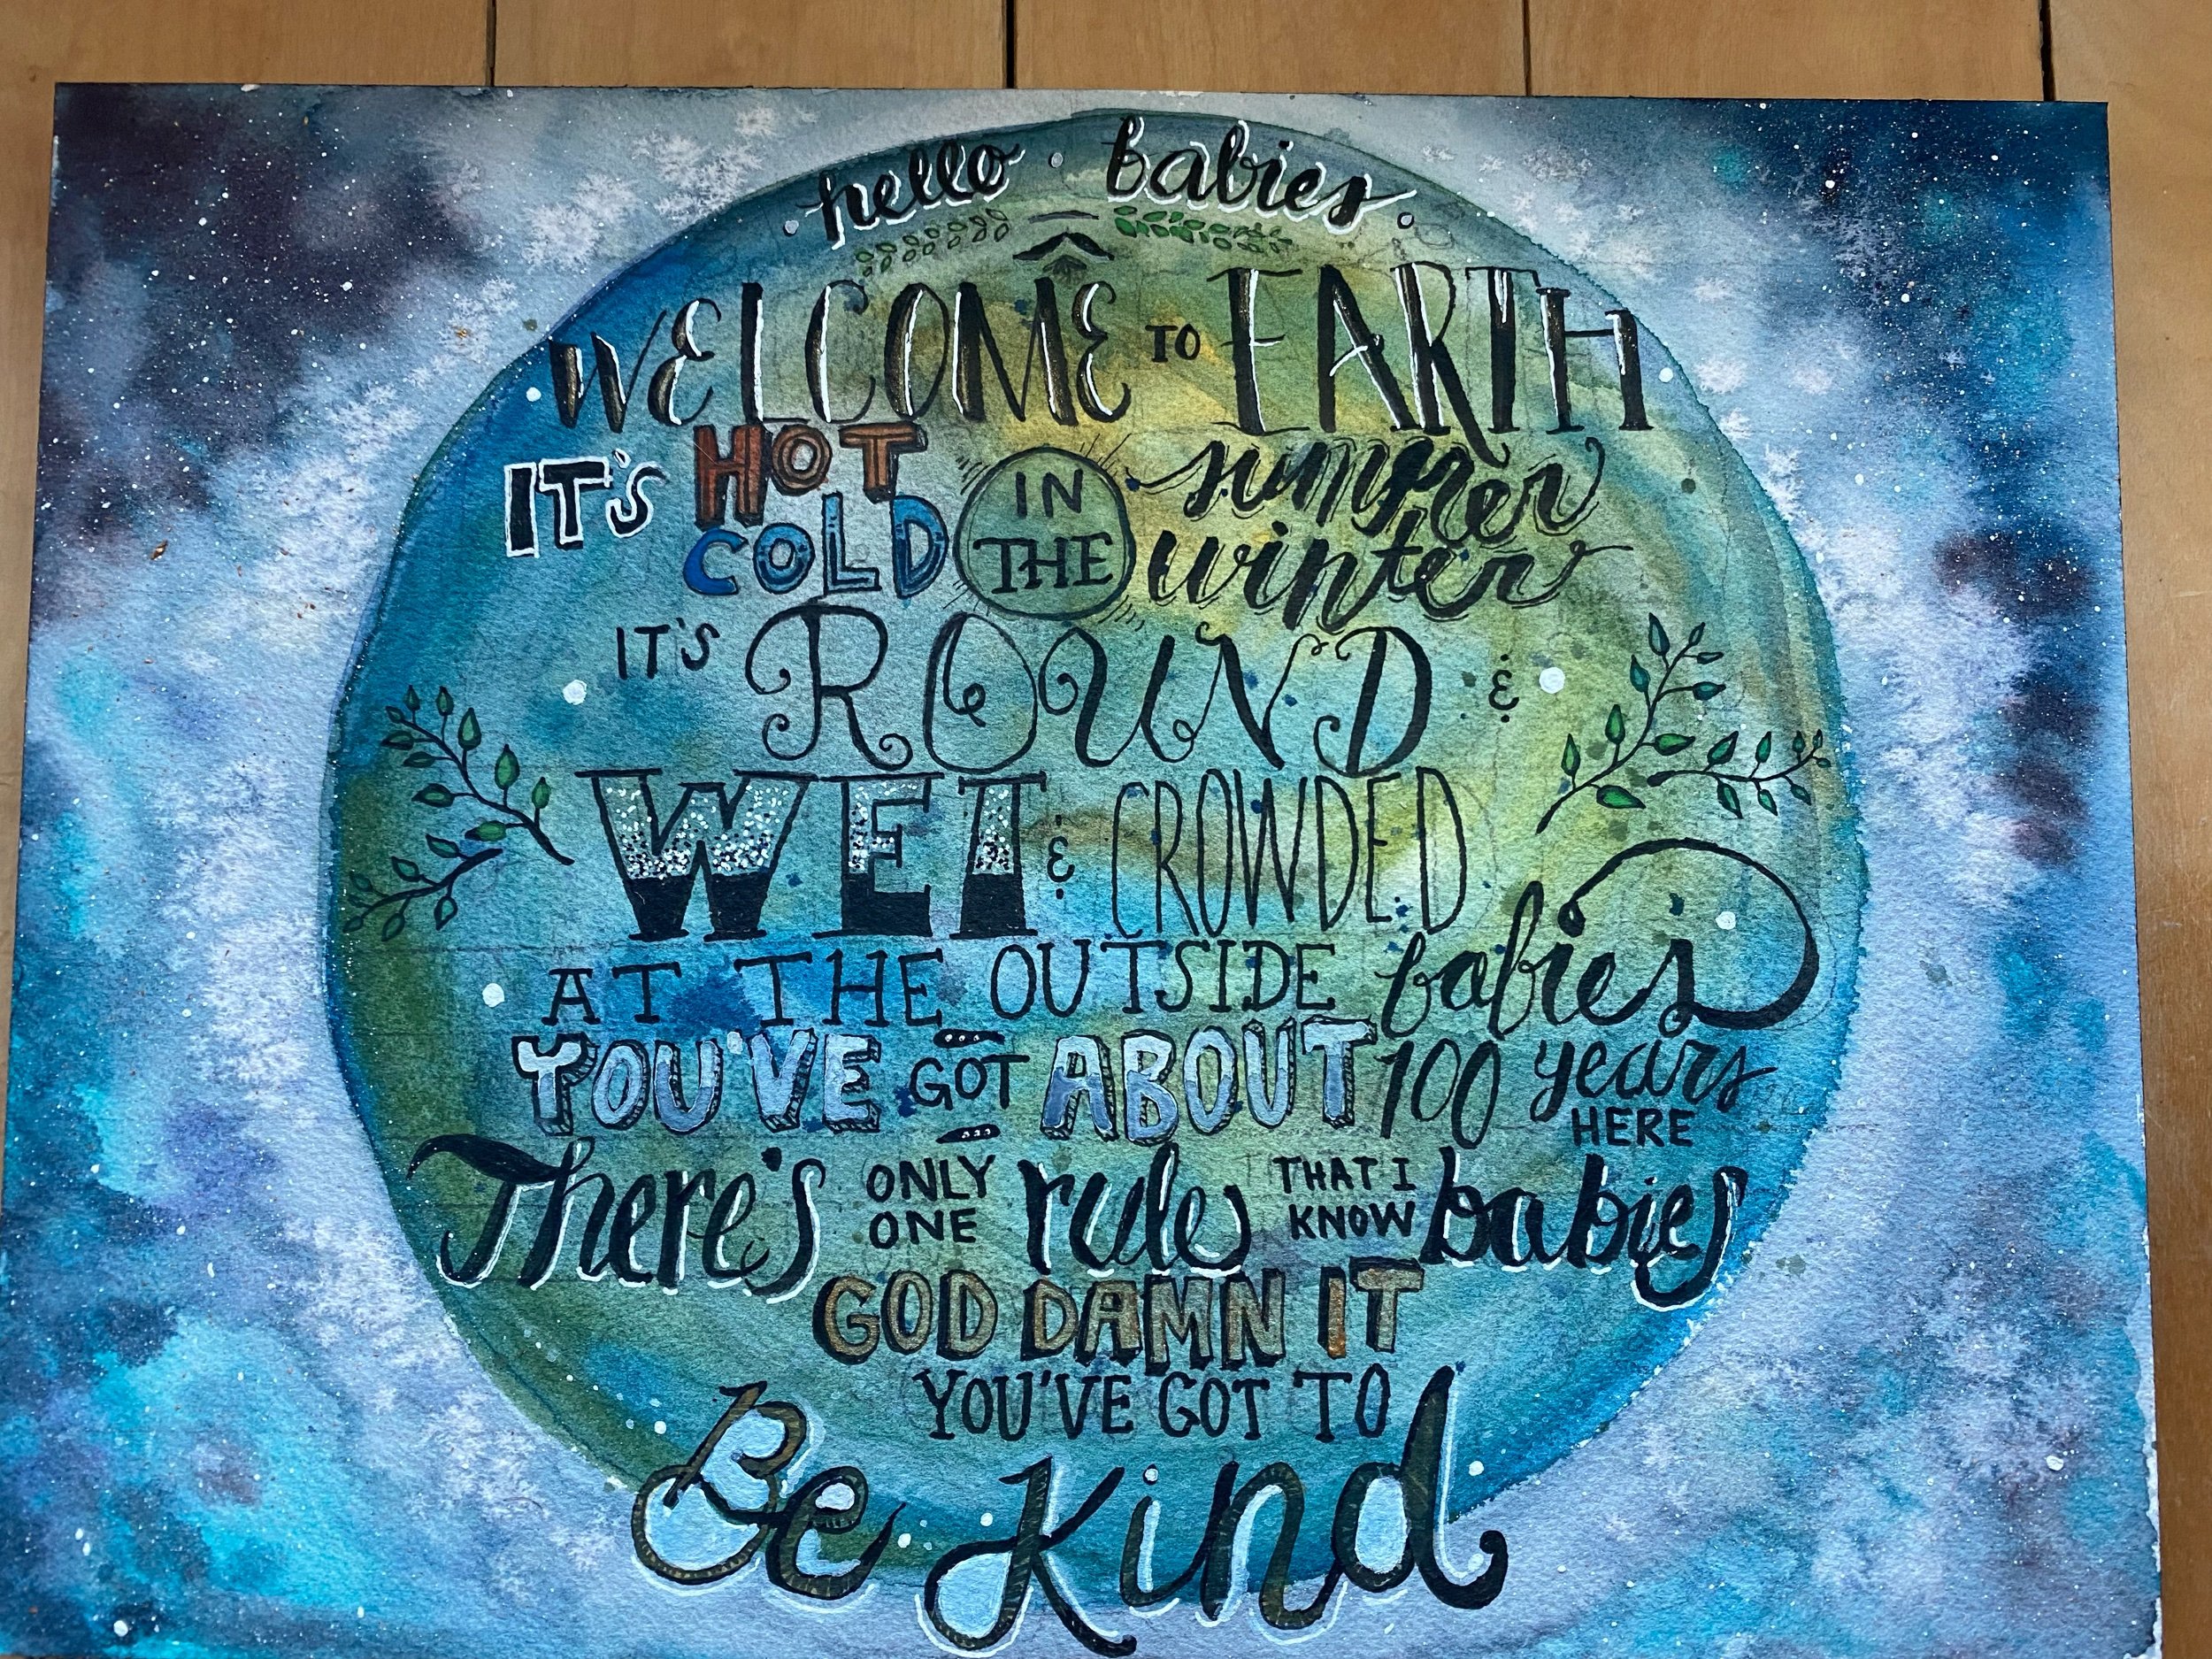 hello babies
WELCOME TO EARTH
IT'S HOT IN THE summer
COLD winter
IT'S ROUND &
WET & CROWDED
AT THE OUTSIDE babies
YOU'VE GOT ABOUT 100 years HERE
There's ONLY ONE rule THAT I KNOW babies
GOD DAMN IT
YOU'VE GOT TO
Be Kind